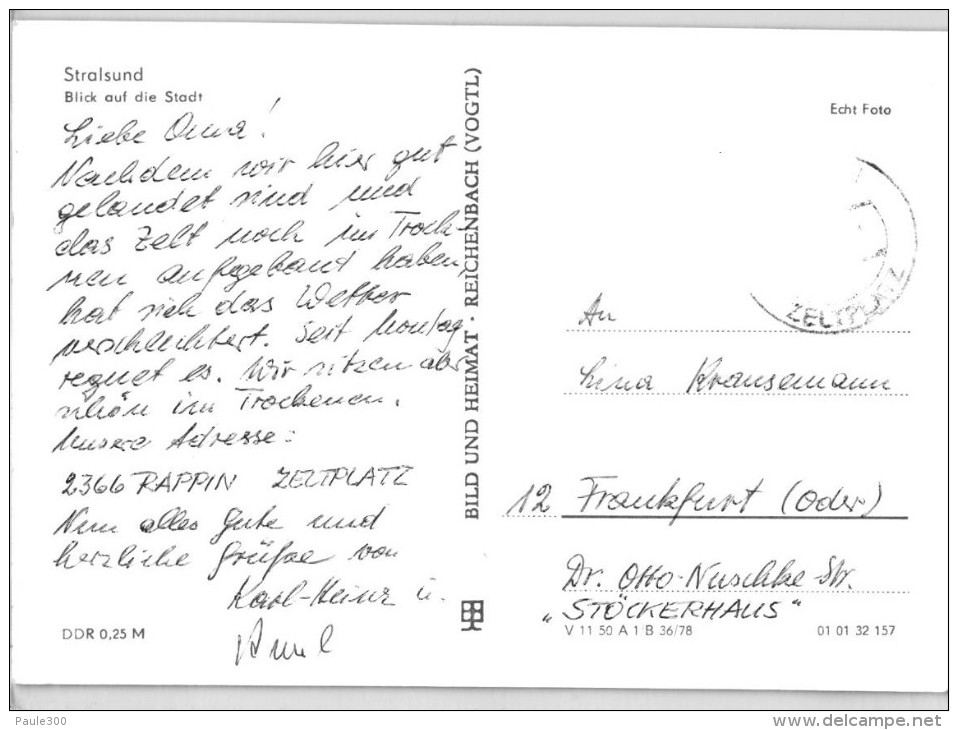 Stralsund
Blick auf die Stadt
Liebe Oma!
Nachdem wir hier gut
gelandet sind und
das Zelt noch im Trock-
nen aufgebaut haben,
hat sich das Wetter
verschlechtert. Seit Montag
regnet es. Wir sitzen aber
schön im Trockenen.
Unsere Adresse:
2366 RAPPIN ZELTPLATZ
Nun alles Gute und
herzliche Grüße von
Karl-Heinz u.
DDR 0,25 M
BILD UND HEIMAT · REICHENBACH (VOGTL)
Echt Foto
ZELTPLATZ
An
Lina Kransemann
12 Frankfurt (Oder)
Dr. Otto-Nuschke-Str.
"STÖCKERHAUS"
V 11 50 A 1/B 36/78 01 01 32 157
Paule300
delcampe.net